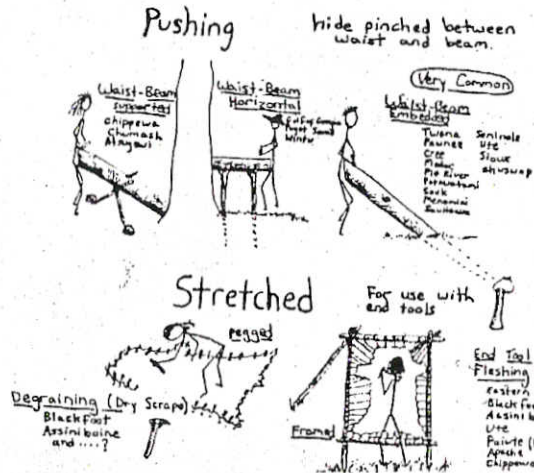 Pushing
hide pinched between
waist and beam.
Very Common
Waist-Beam
supported
Chippewa
Chumash
Waist-Beam
Horizontal
Puget Sound
Wintu
Waist-Beam
Embedded
Twana
Pawnee
Cree
Modoc
Pit River
Potawatami
Sauk
Menomini
Seminole
Ute
Sioux
Shuswap
Stretched
For use with
end tools
pegged
Degraining (Dry Scrape)
Blackfoot
Assiniboine
and ....?
Frame
End Tool
Fleshing
Eastern
Blackfoo
Assinib
Ute
Paiute (
Apache
Chippewa